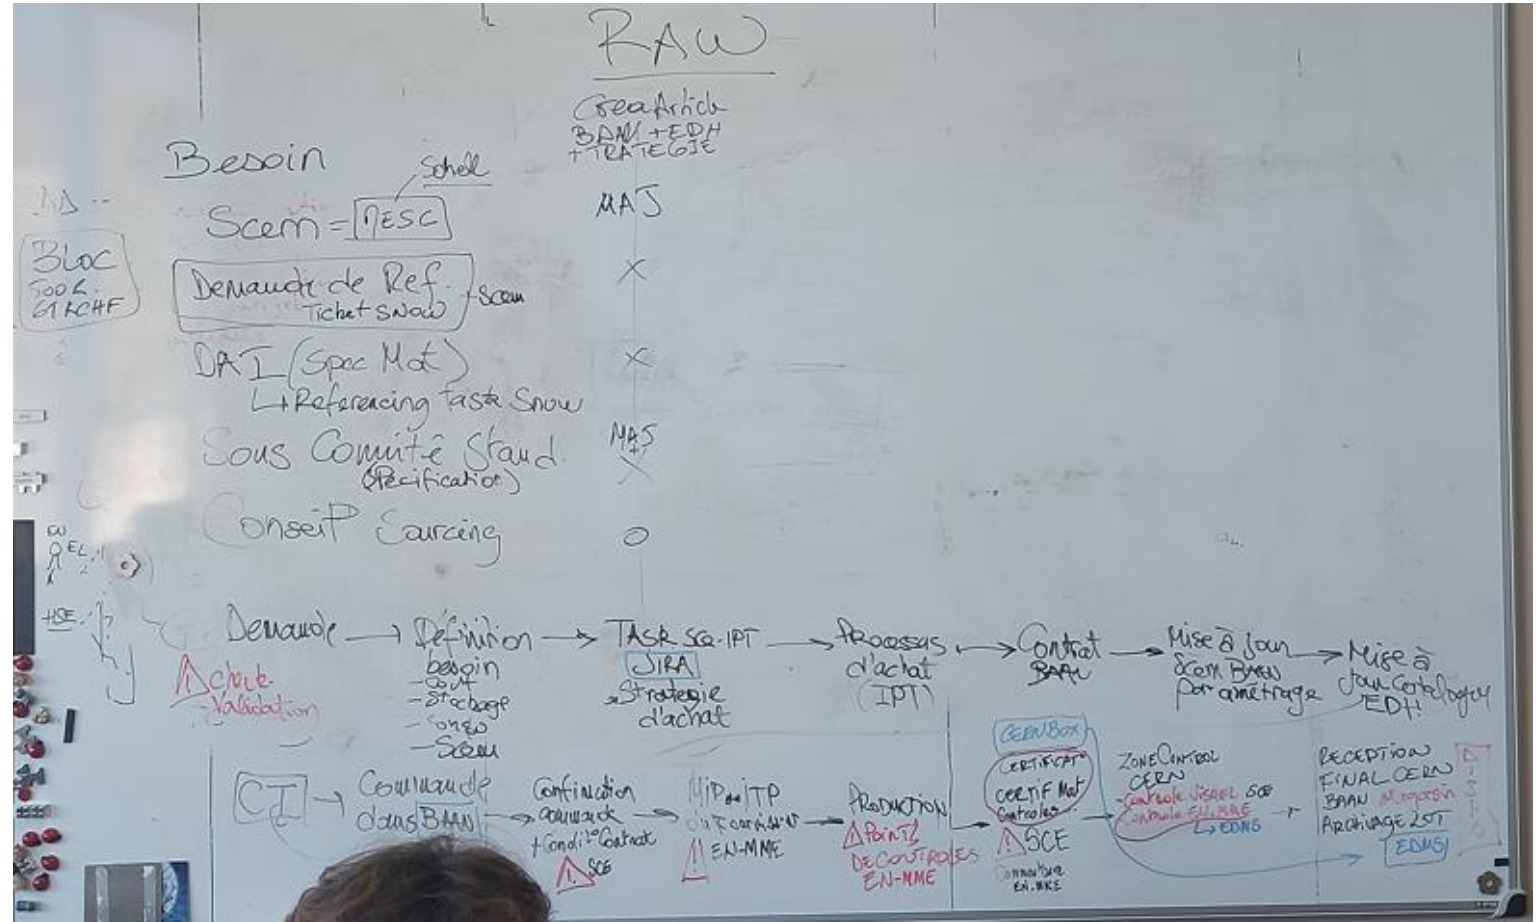 RAW
Crea Article
BAAN + EDH
+ TRATEGIE
Besoin
Scem = MESC
MAJ
BLOC
Demande de Ref.
Ticket SNOW
Scem
X
DAI (Spec Mat)
X
↳ Referencing Task Snow
Sous Comité Stand.
(Spécification)
MAJ
X
Conseil Sourcing
O
HSE
Demande → Définition besoin
- Stockage
- Scem
→ TASK SCE-IPT
JIRA
Strategie
d'achat
→ Processus
d'achat
(IPT)
→ Contrat
BAAN
→ Mise à jour
Scem BAAN
paramétrage
→ Mise à
jour Catalogue
EDH
check
Validation
CI → Commande
dans BAAN
Confirmation
commande
+ Condit° Contrat
SCE
→ MIP ou ITP
EN-MME
→ PRODUCTION
POINTS
DE CONTROLES
EN-MME
CERNBOX
CERTIFICAT
CERTIF Mat
Controles
SCE
EN-MME
ZONE CONTROL
CERN
- Controle VISUEL SCE
Controle EN-MME
↳ EDMS
RECEPTION
FINAL CERN
BAAN Magasin
ARCHIVAGE
EDMS